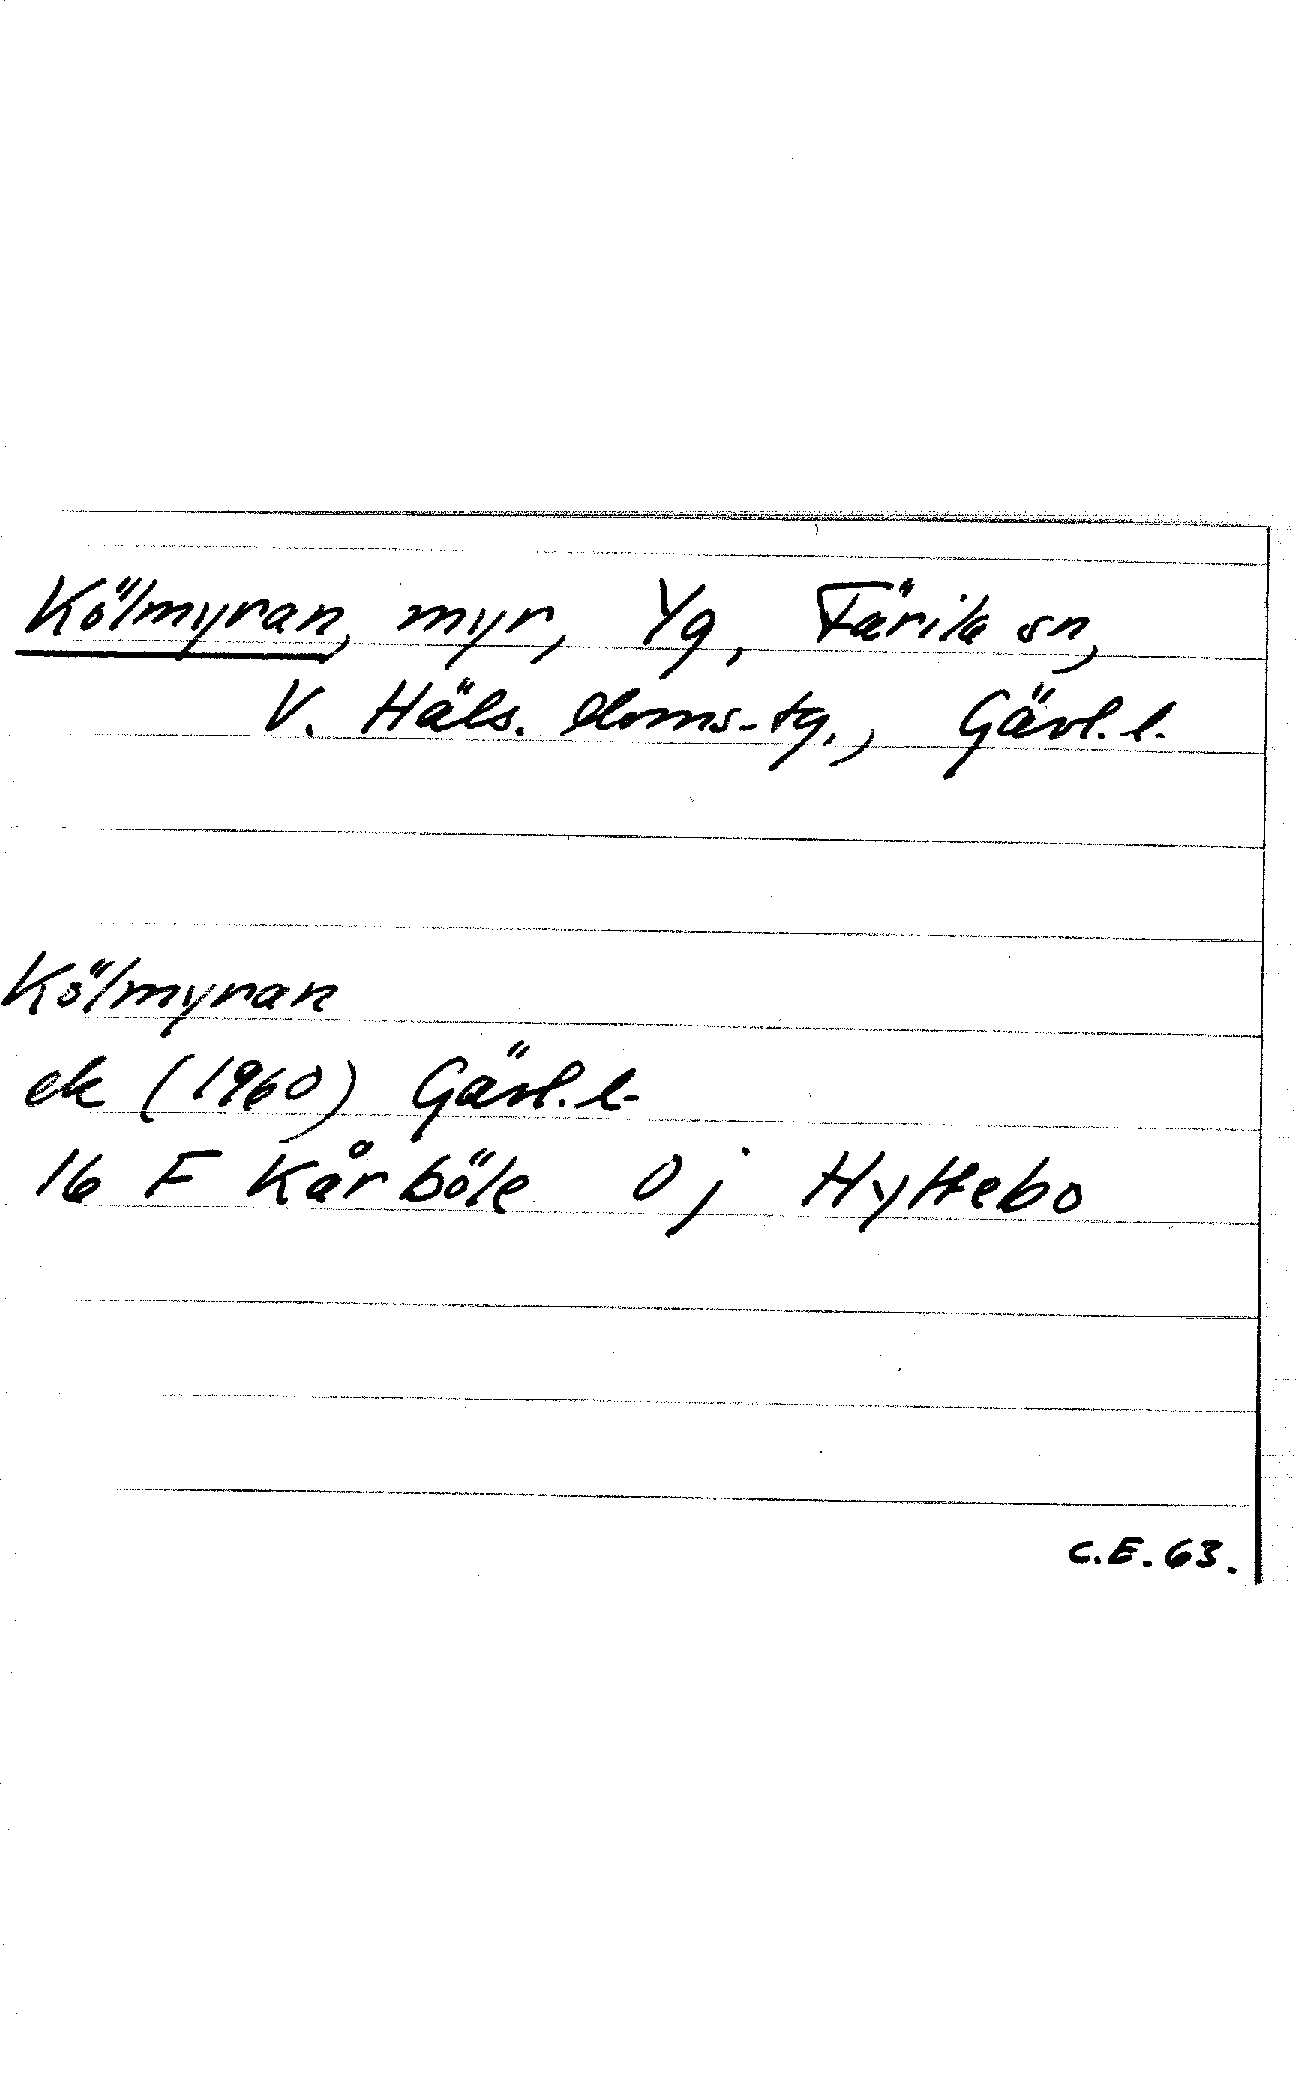 Kölmyran, myr, Yg, Färila sn,
V. Häls. doms.tg., Gävl. l.
Kölmyran
ek (1960) Gävl. l.
16 F Kårböle 0 j Hyttebo
C.E. 63.